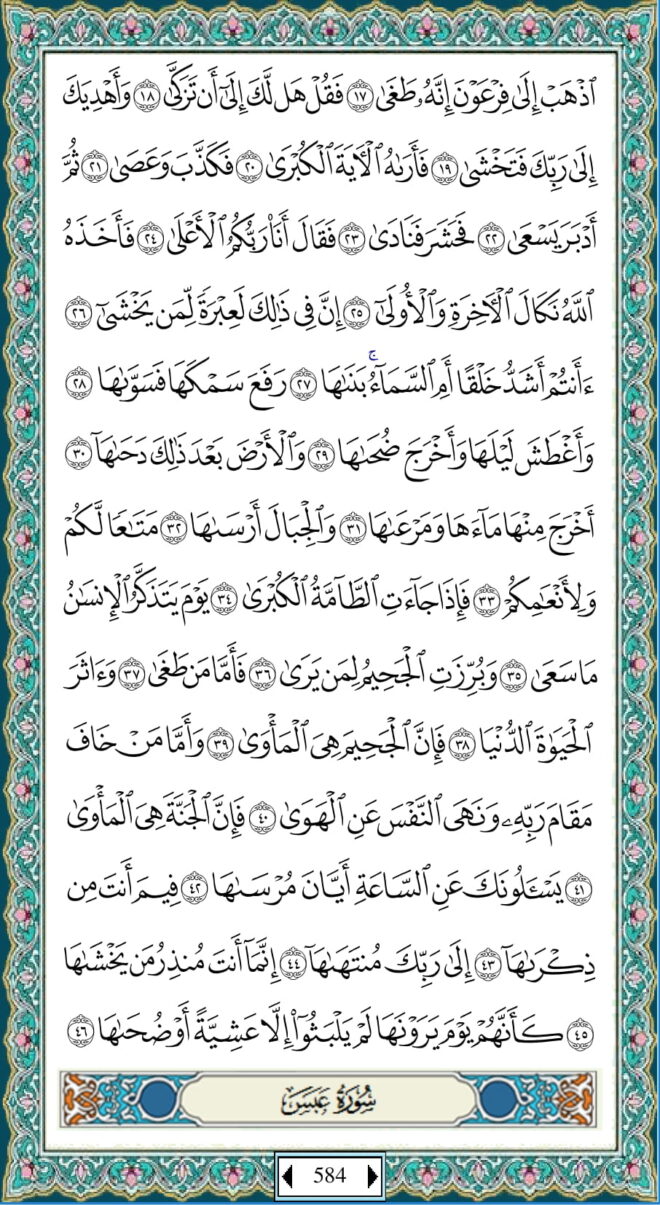 ٱذۡهَبۡ إِلَىٰ فِرۡعَوۡنَ إِنَّهُۥ طَغَىٰ ١٧ فَقُلۡ هَل لَّكَ إِلَىٰٓ أَن تَزَكَّىٰ ١٨ وَأَهۡدِيَكَ
إِلَىٰ رَبِّكَ فَتَخۡشَىٰ ١٩ فَأَرَىٰهُ ٱلۡأٓيَةَ ٱلۡكُبۡرَىٰ ٢٠ فَكَذَّبَ وَعَصَىٰ ٢١ ثُمَّ
أَدۡبَرَ يَسۡعَىٰ ٢٢ فَحَشَرَ فَنَادَىٰ ٢٣ فَقَالَ أَنَا۠ رَبُّكُمُ ٱلۡأَعۡلَىٰ ٢٤ فَأَخَذَهُ
ٱللَّهُ نَكَالَ ٱلۡأٓخِرَةِ وَٱلۡأُولَىٰٓ ٢٥ إِنَّ فِي ذَٰلِكَ لَعِبۡرَةٗ لِّمَن يَخۡشَىٰٓ ٢٦
ءَأَنتُمۡ أَشَدُّ خَلۡقًا أَمِ ٱلسَّمَآءُۚ بَنَىٰهَا ٢٧ رَفَعَ سَمۡكَهَا فَسَوَّىٰهَا ٢٨
وَأَغۡطَشَ لَيۡلَهَا وَأَخۡرَجَ ضُحَىٰهَا ٢٩ وَٱلۡأَرۡضَ بَعۡدَ ذَٰلِكَ دَحَىٰهَآ ٣٠
أَخۡرَجَ مِنۡهَا مَآءَهَا وَمَرۡعَىٰهَا ٣١ وَٱلۡجِبَالَ أَرۡسَىٰهَا ٣٢ مَتَٰعٗا لَّكُمۡ
وَلِأَنۡعَٰمِكُمۡ ٣٣ فَإِذَا جَآءَتِ ٱلطَّآمَّةُ ٱلۡكُبۡرَىٰ ٣٤ يَوۡمَ يَتَذَكَّرُ ٱلۡإِنسَٰنُ
مَا سَعَىٰ ٣٥ وَبُرِّزَتِ ٱلۡجَحِيمُ لِمَن يَرَىٰ ٣٦ فَأَمَّا مَن طَغَىٰ ٣٧ وَءَاثَرَ
ٱلۡحَيَوٰةَ ٱلدُّنۡيَا ٣٨ فَإِنَّ ٱلۡجَحِيمَ هِيَ ٱلۡمَأۡوَىٰ ٣٩ وَأَمَّا مَنۡ خَافَ
مَقَامَ رَبِّهِۦ وَنَهَى ٱلنَّفۡسَ عَنِ ٱلۡهَوَىٰ ٤٠ فَإِنَّ ٱلۡجَنَّةَ هِيَ ٱلۡمَأۡوَىٰ
٤١ يَسۡـَٔلُونَكَ عَنِ ٱلسَّاعَةِ أَيَّانَ مُرۡسَىٰهَا ٤٢ فِيمَ أَنتَ مِن
ذِكۡرَىٰهَآ ٤٣ إِلَىٰ رَبِّكَ مُنتَهَىٰهَآ ٤٤ إِنَّمَآ أَنتَ مُنذِرُ مَن يَخۡشَىٰهَا
٤٥ كَأَنَّهُمۡ يَوۡمَ يَرَوۡنَهَا لَمۡ يَلۡبَثُوٓاْ إِلَّا عَشِيَّةً أَوۡ ضُحَىٰهَا ٤٦
سُورَةُ عَبَسَ
584